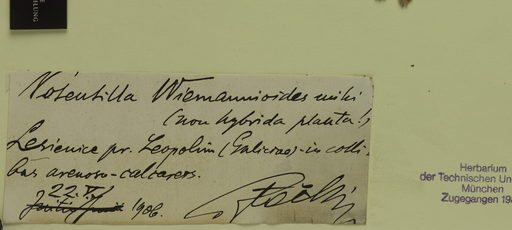 HLUNG
Potentilla Wiemannioides mihi
(non hybrida planta!)
Lesienice pr. Leopolim (Galiciae) in colli-
bus arenoso-calcareis.
22. V.
1906.
Herbarium
der Technischen Un
München
Zugegangen 19